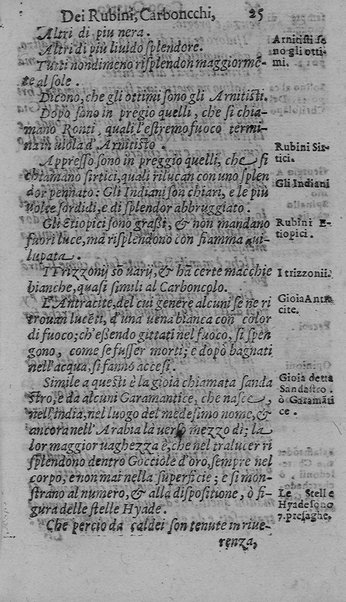 Dei Rubini, Carboncchi, 25
Altri di piu nera.
Altri di piu liuido splendore.
Tutti nondimeno risplendon maggiormẽ-
te al sole.
Arnitisti so
no gli otti-
mi.
Dicono, che gli ottimi sono gli Arnitisti.
Dopo sono in pregio quelli, che si chia-
mano Ronti, quali l'estremo fuoco termi-
na in uiola d'Arnitisto.
Appresso sono in preggio quelli, che si
chiamano sirtici, quali rilucan con uno splen
dor pennato: Gli Indiani son chiari, e le piu
uolte sordidi, e di splendor abbruggiato.
Rubini Sir-
tici.
Gli Indiani
Gli Etiopici sono grassi, & non mandano
fuori luce, ma risplendono con fiamma aui-
lupata.
Rubini E-
tiopici.
I Trizzony sõ uary, & ha certe macchie
bianche, quasi simili al Carboncolo.
I trizzonii.
L'Antracite, del cui genere alcuni se ne ri
trouan lucẽti, d'una uena bianca con color
di fuoco; ch'essendo gittati nel fuoco, si spen
gono, come se fusser morti; e dopò bagnati
nell'acqua, si fanno accesi.
Gioia Antra
cite.
Simile a questi è la gioia chiamata sanda
stro, e da alcuni Garamantice, che nasce,
nell'India, nel luogo del medesimo nome, &
ancora nell'Arabia la uerso mezzo dì; la
lor maggior uaghezza è, che nel tralucer ri
splendono dentro Gocciole d'oro, sempre nel
corpo, e non mai nella superficie; e si mon-
strano al numero, & alla dispositione, ò fi-
gura delle stelle Hyade.
Gioia detta
Sandastro.
ò Garamãti
ce.
Le Stelle
Hyade sono
7. presaghe.
Che percio da caldei son tenute in riue-
renza,